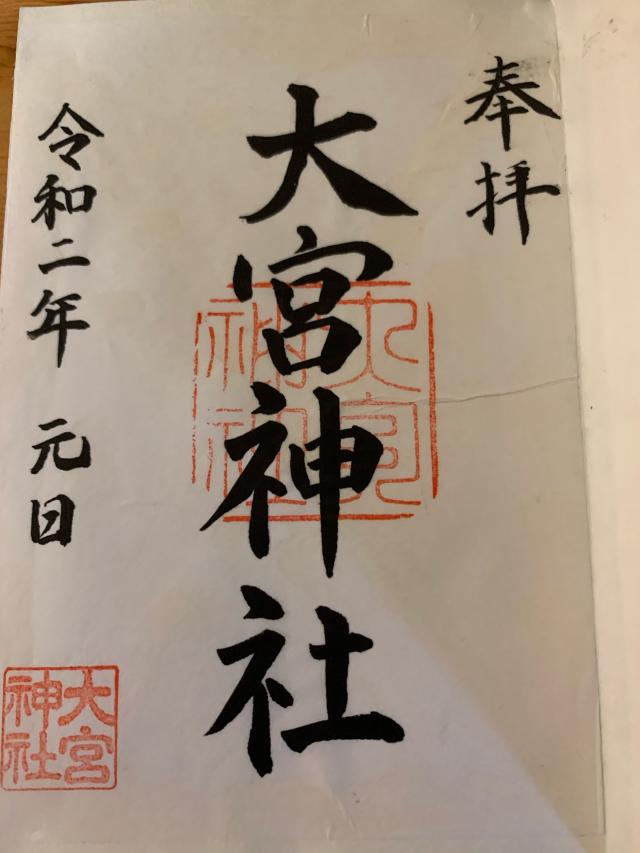 奉拝
大宮神社
大宮神社
令和二年 元日
大宮神社